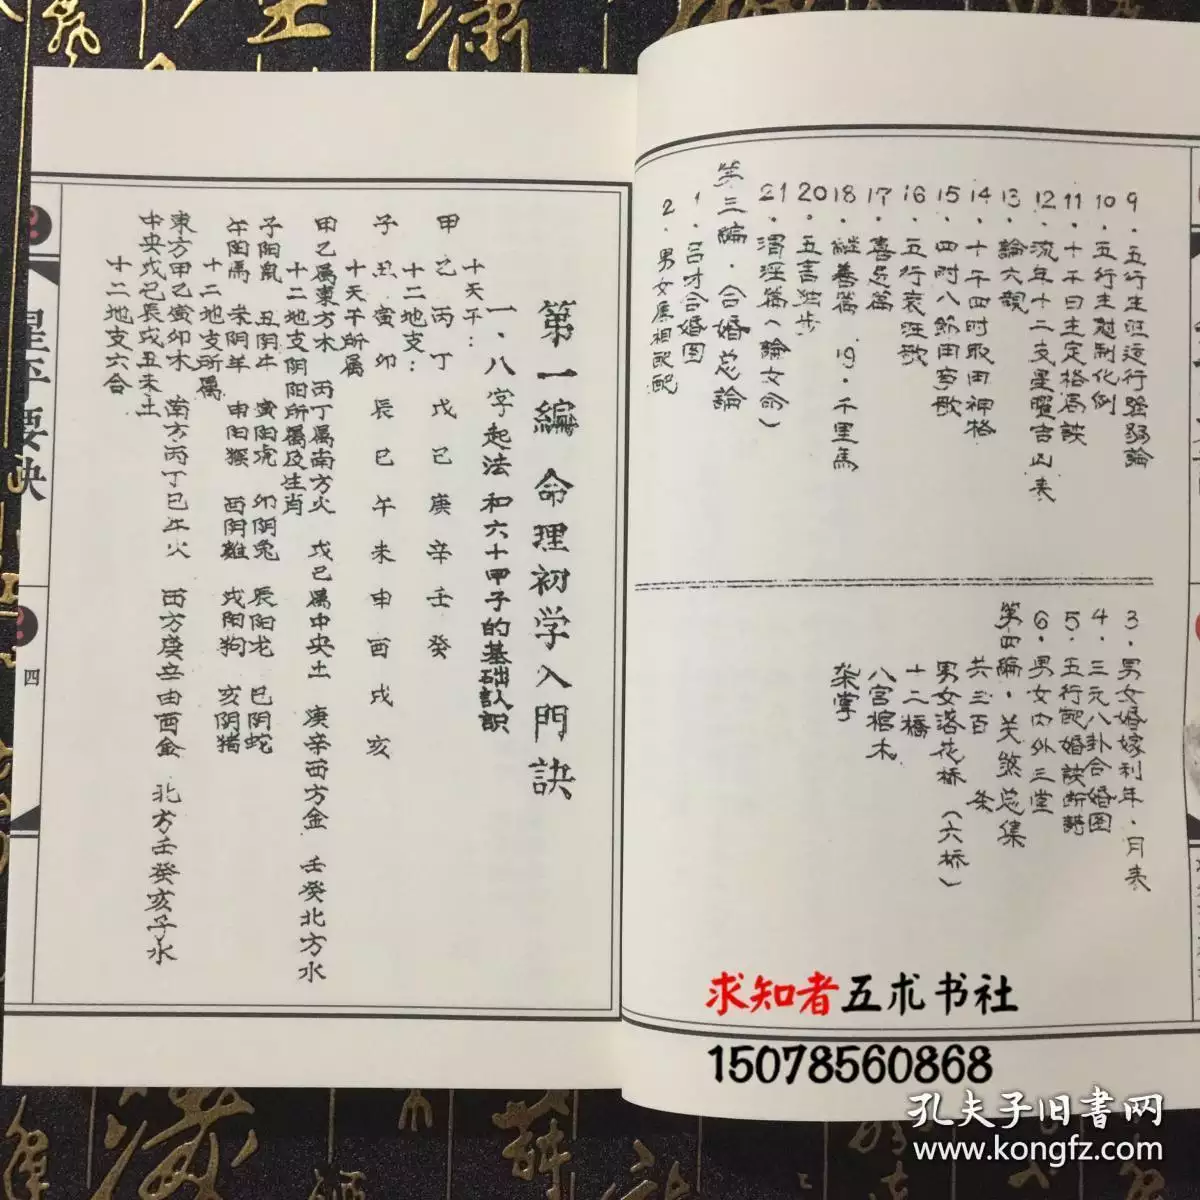 9．五行生旺运行强弱論
10．五行生尅制化例
11．十干日主定格局訣
12．流年十二支星曜吉凶表
13．論六親
14．十干四时取用神格
15．四时八節田亨歌
16．五行衰旺歌
17．喜忌篇
18．継善篇 19．千里馬
20．五言独步
21．渭泾篇（論女命）
第三編．合婚总論
1．吕才合婚图
2．男女属相配配
3．男女婚嫁利年．月表
4．三元八卦合婚图
5．五行配婚訣断詩
6．男女内外三堂
第四編．关煞总集
共三百 条
男女落花桥（六桥）
十二橋
八宫棺木
架掌
第一編 命理初学入門訣
一．八字起法和六十甲子的基础认识
十天干：
甲乙丙丁戊己庚辛壬癸
十二地支：
子丑寅卯辰巳午未申酉戌亥
十天干所属
甲乙属東方木 丙丁属南方火 戊己属中央土 庚辛西方金 壬癸北方水
十二地支阴阳所属及生肖
子阳鼠 丑阴牛 寅阳虎 卯阴兔 辰阳龙 巳阴蛇
午阳馬 未阴羊 申阳猴 酉阴雞 戌阳狗 亥阴猪
十二地支所属
東方甲乙寅卯木 南方丙丁巳午火 西方庚辛申酉金 北方壬癸亥子水
中央戊己辰戌丑未土
十二地支六合
星平要诀
四
求知者五术书社
15078560868
孔夫子旧書网
www.kongfz.com